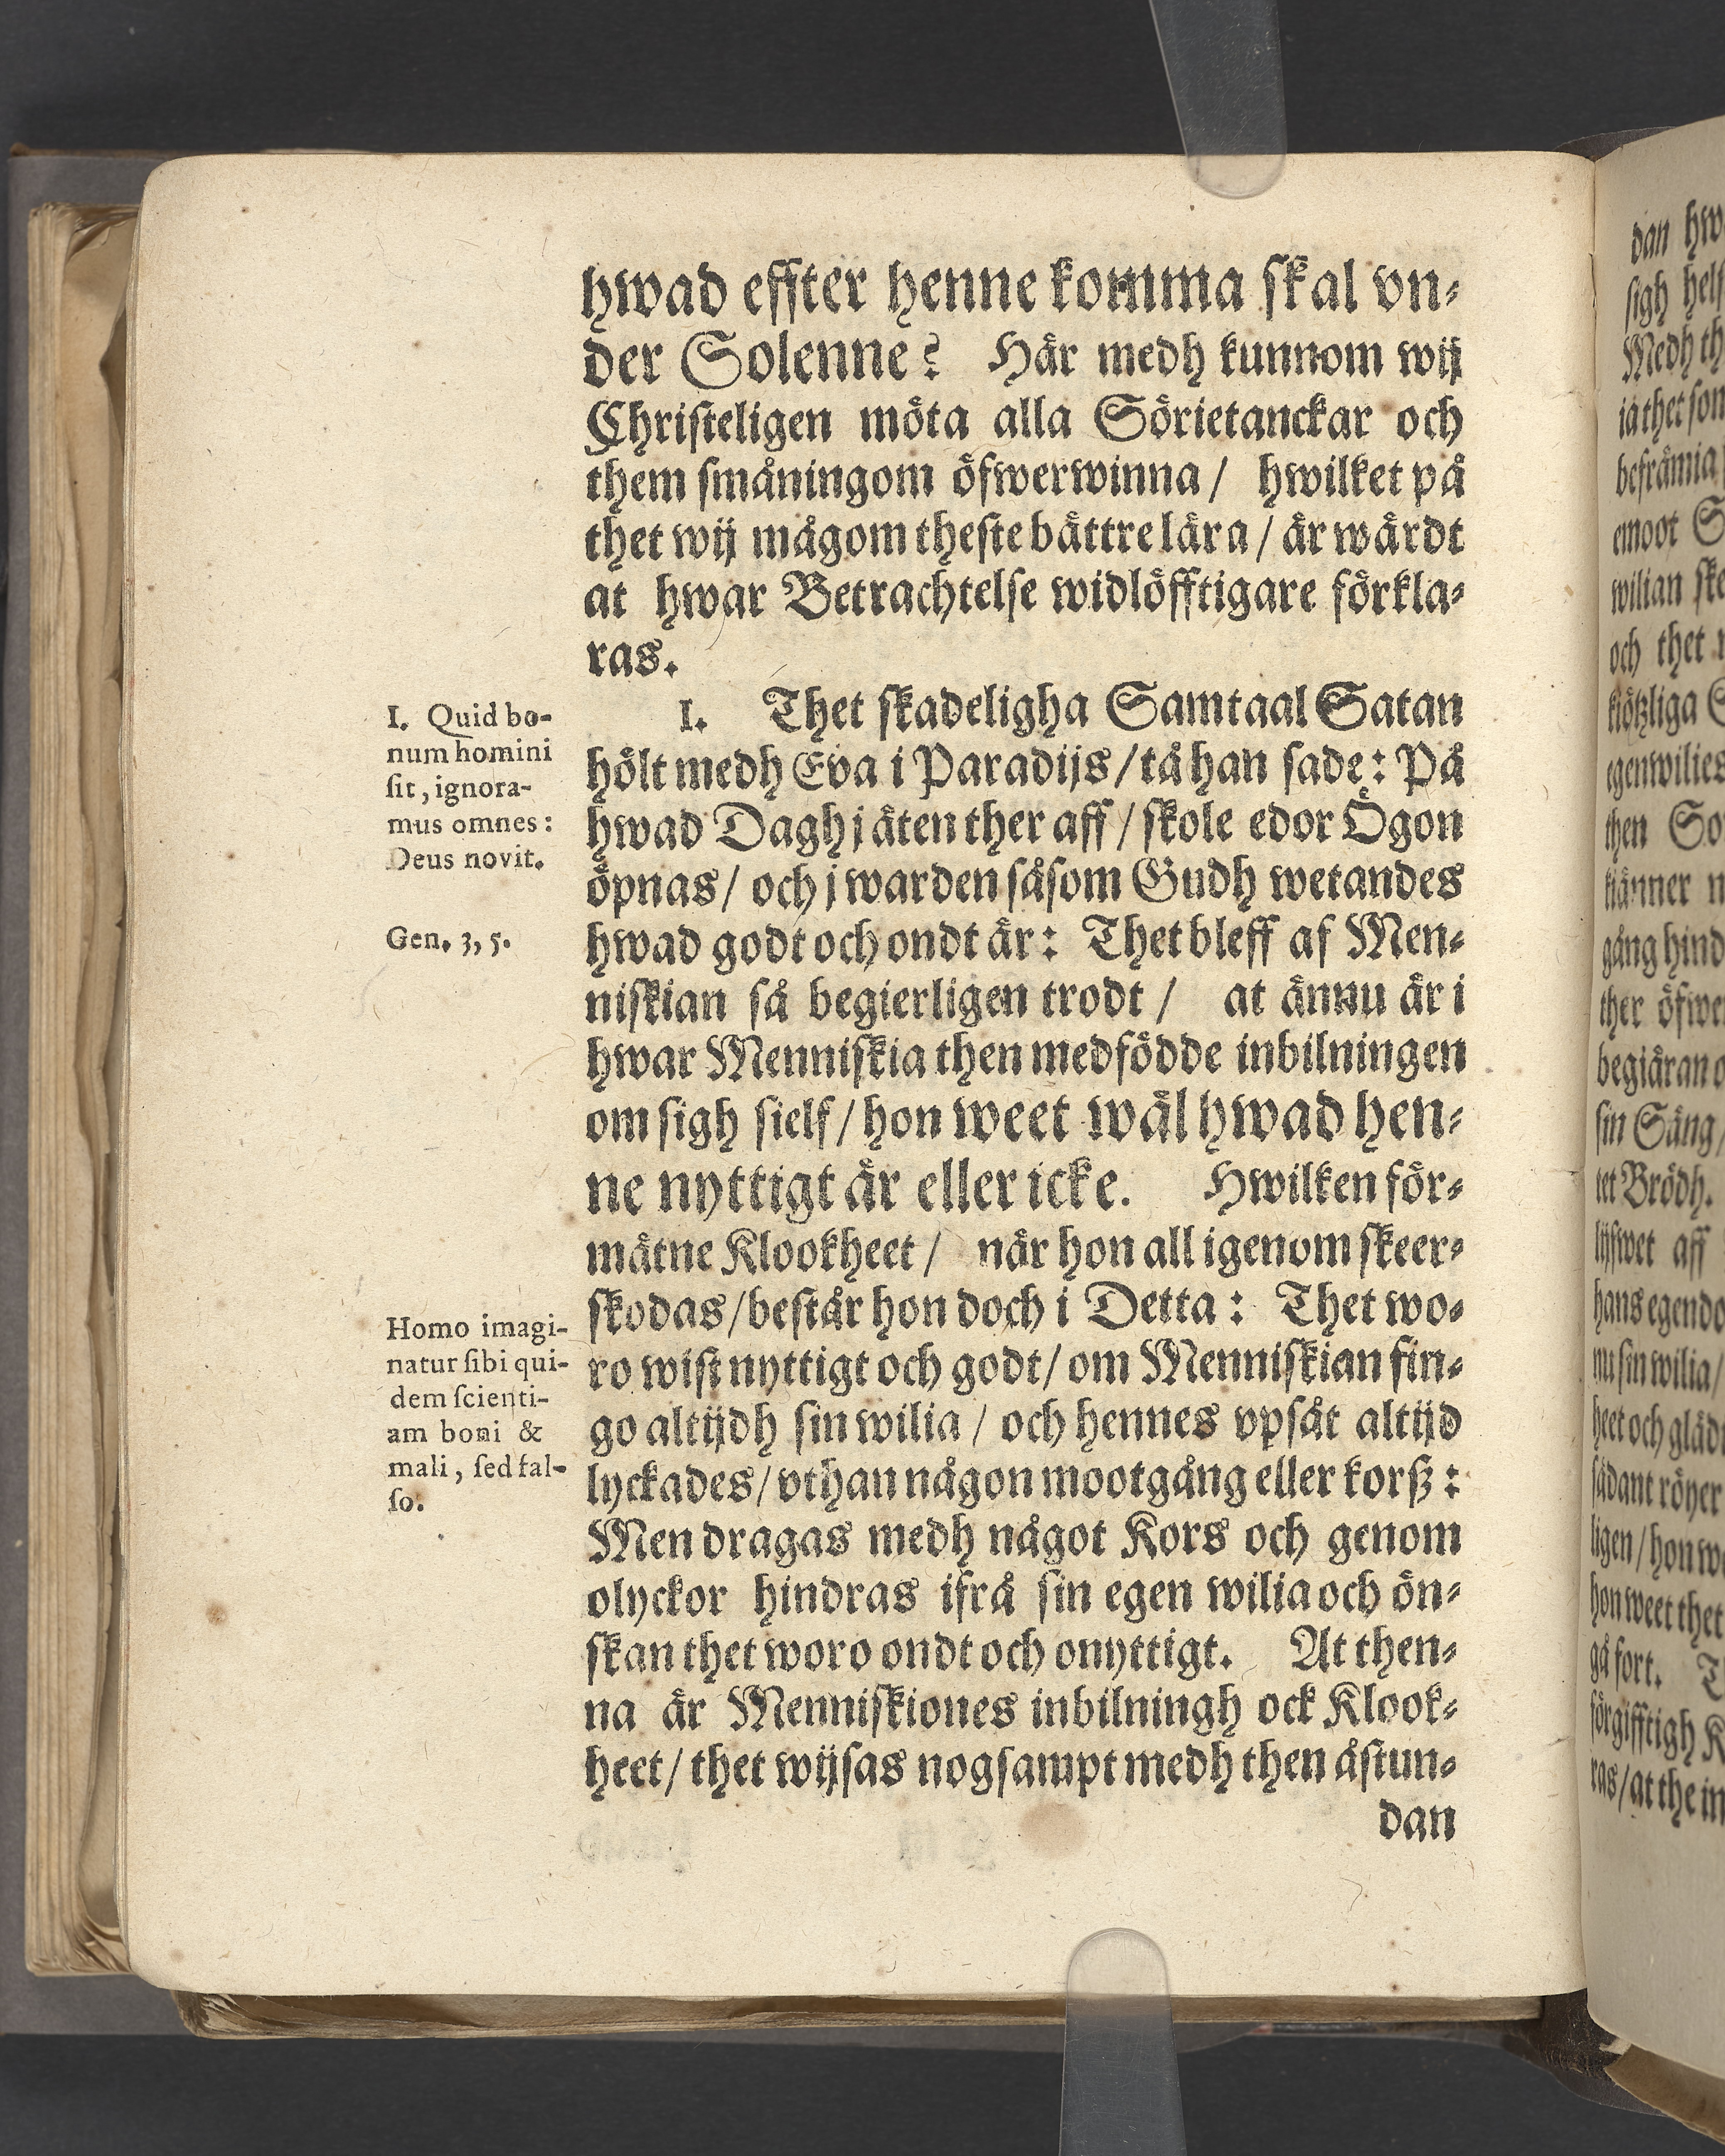 hwad effter henne komma skal vn-
der Solenne? Här medh kunnom wij
Christeligen möta alla Sörietanckar och
them småningom öfwerwinna / hwilket på
thet wij mågom theste bättre lära / är wärdt
at hwar Betrachtelse widlöfftigare förkla-
ras.
I. Thet skadeligha Samtaal Satan
hölt medh Eva i Paradijs / tå han sade: På
hwad Dagh j äten ther aff / skole edor Ögon
öpnas / och j warden såsom Gudh wetandes
hwad godt och ondt är: Thet bleff af Men-
niskian så begierligen trodt / at ännu är i
hwar Menniskia then medfödde inbilningen
om sigh sielf / hon weet wäl hwad hen-
ne nyttigt är eller icke. Hwilken för-
mätne Klookheet / när hon all igenom skeer-
skodas / består hon doch i Detta: Thet wo-
ro wist nyttigt och godt / om Menniskian fin-
go altijdh sin wilia / och hennes vpsåt altijd
lyckades / vthan någon mootgång eller korß:
Men dragas medh något Kors och genom
olyckor hindras ifrå sin egen wilia och ön-
skan thet woro ondt och onyttigt. At then-
na är Menniskiones inbilningh ock Klook-
heet / thet wijsas nogsampt medh then åstun-
dan
I. Quid bo-
num homini
sit, ignora-
mus omnes:
Deus novit.
Gen. 3, 5.
Homo imagi-
natur sibi qui-
dem scienti-
am boni &
mali, sed fal-
so.
dan
sigh
Medh
beframia
emoot
wilian
och thet
egenwilies
then
gång
ther
begiäran
sin Säng /
tet Brödh.
aff
hans
nu sin wilia /
heet och
sådant röner
ligen / hon
hon weet thet
gå fort.
förgifftigh
ras / at the in